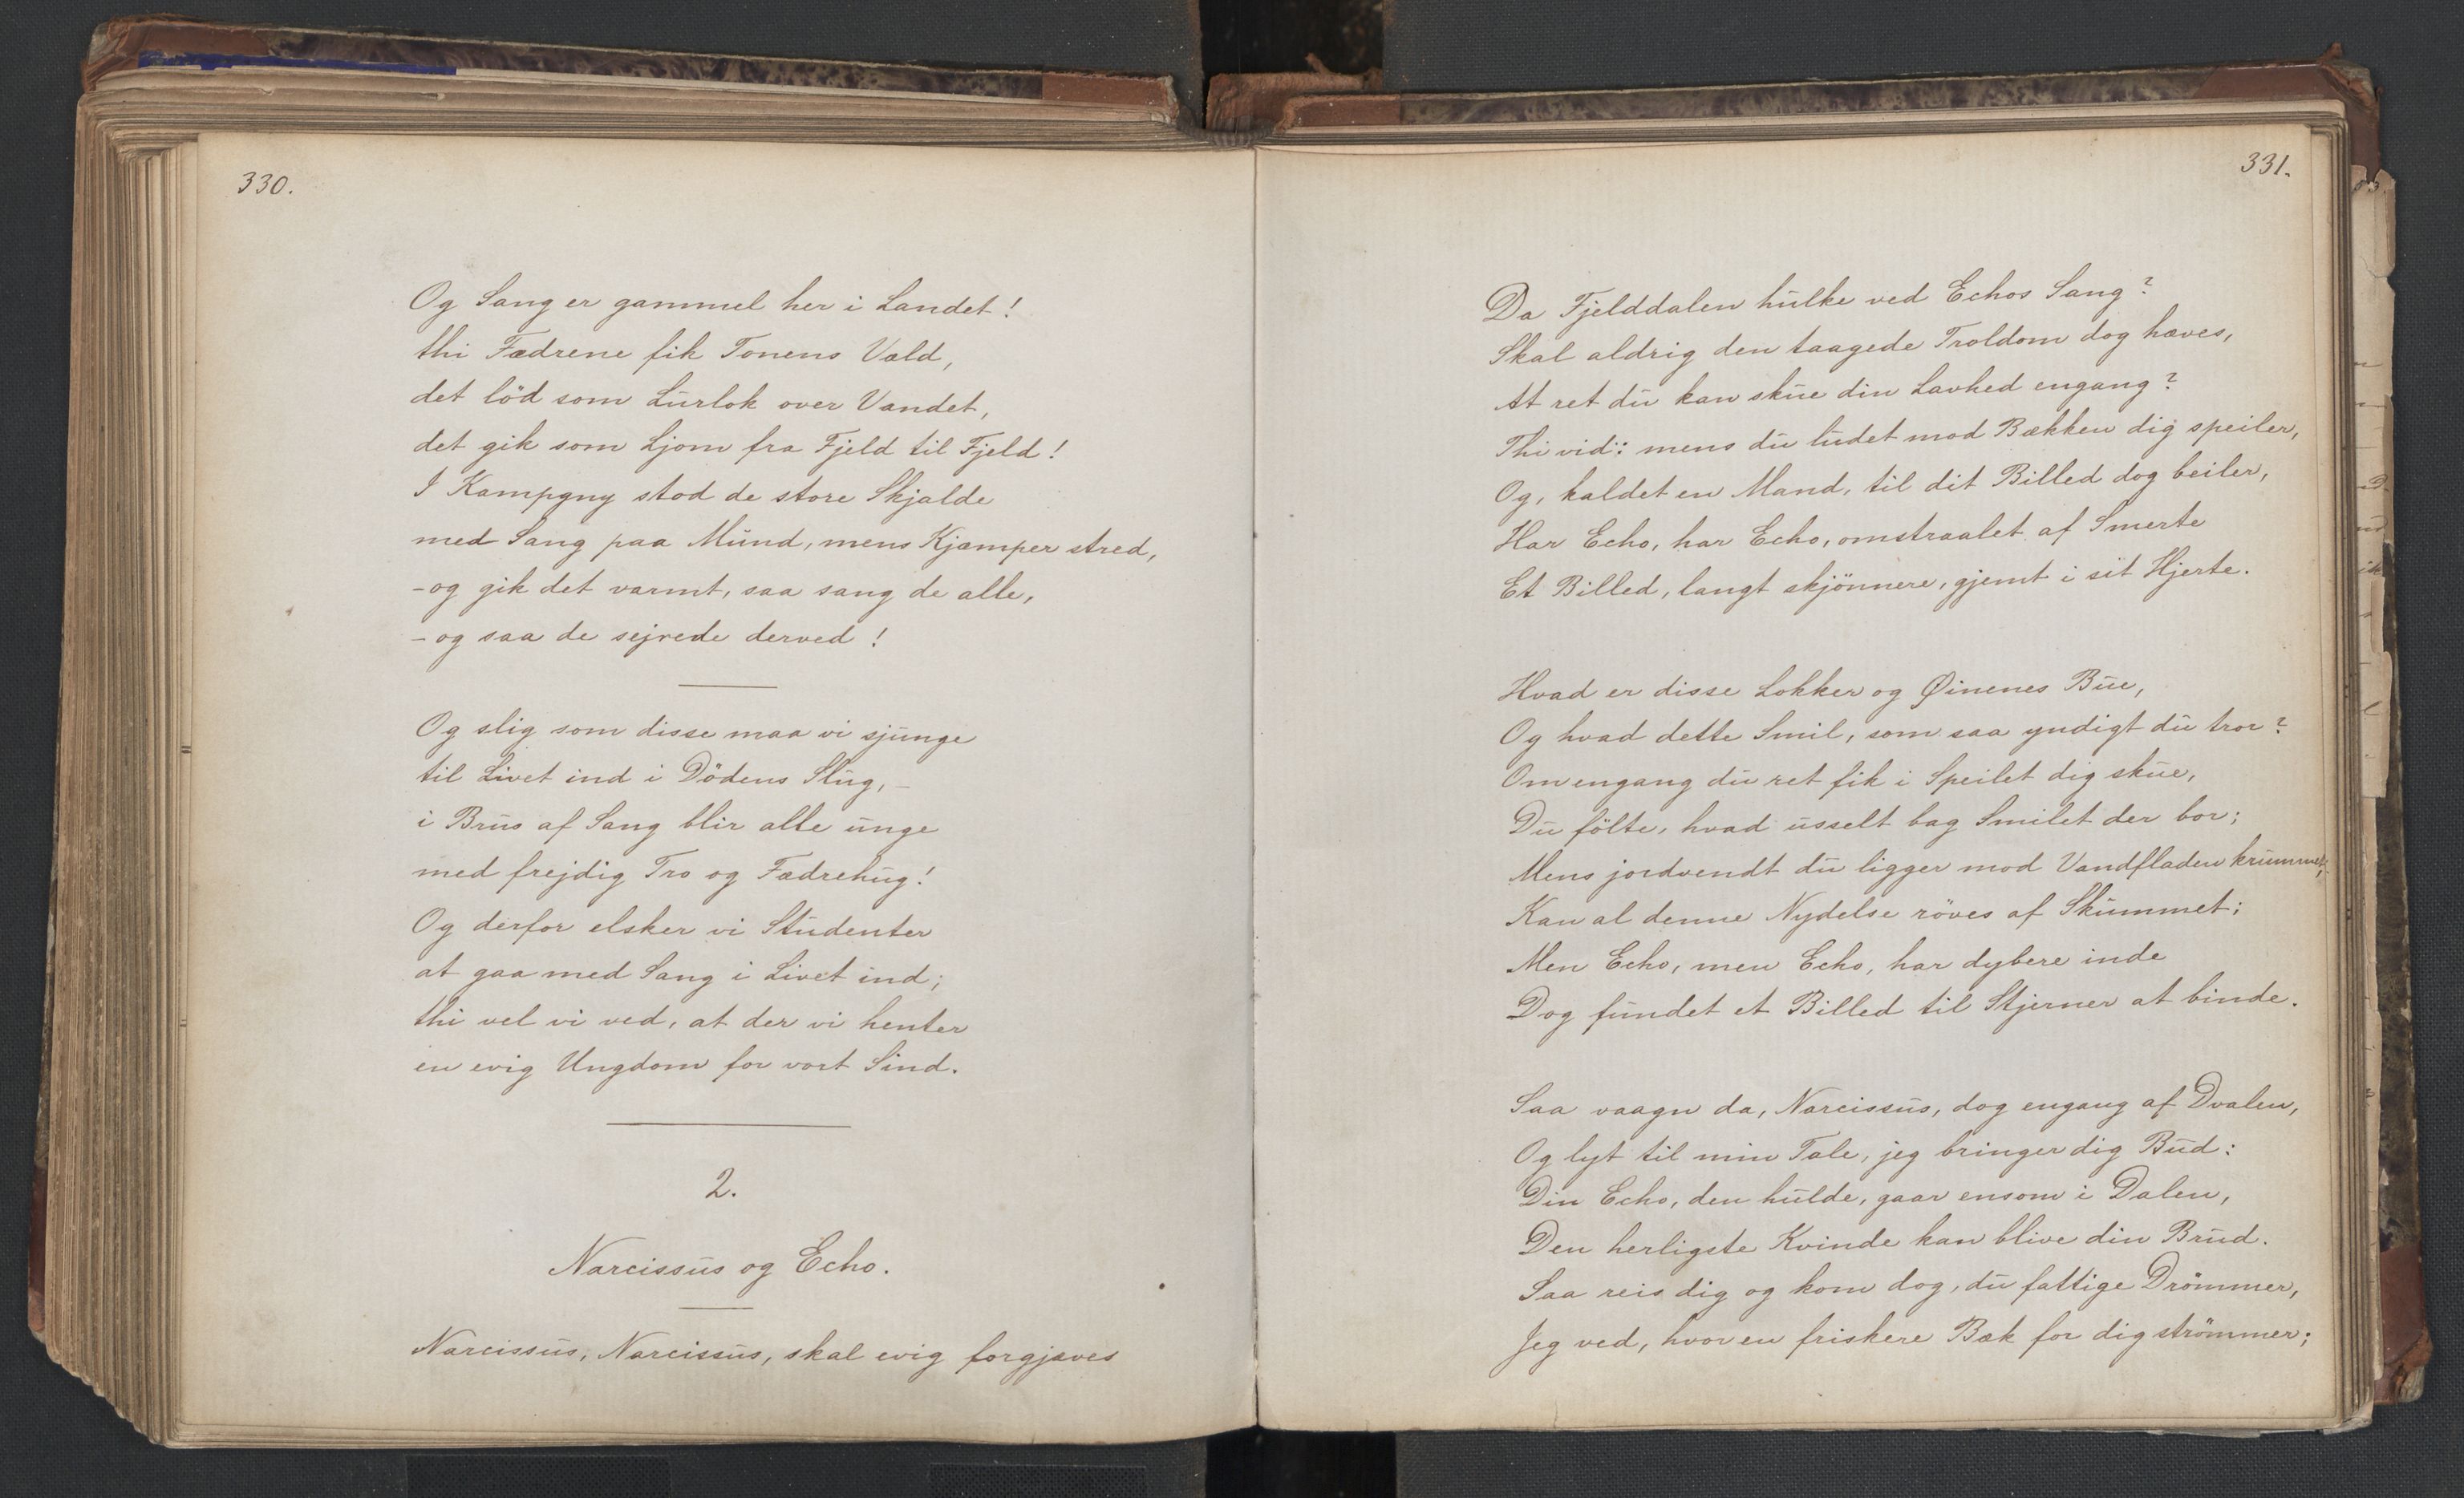 330.
Og Sang er gammel her i Landet!
thi Fædrene fik Tonens Væld,
det löd som Lurlok over Vandet,
det gik som Ljom fra Fjeld til Fjeld!
I Kampgny stod de store Skjalde
med Sang paa Mund, mens Kjæmper stred,
- og gik det varmt, saa sang de alle,
- og saa de sejrede derved!
Og slig som disse maa vi sjunge
til Livet ind i Dödens Slug, -
i Brus af Sang blir alle unge
med frejdig Tro og Fædrehug!
Og derfor elsker vi Studenter
at gaa med Sang i Livet ind;
thi vel vi ved, at der vi henter
en evig Ungdom for vort Sind.
2.
Narcissus og Echo.
Narcissus, Narcissus, skal evig forgjæves
331.
Da Fjelddalen hulke ved Echos Sang?
Skal aldrig den taagede Troldom dog hæves,
At ret du kan skue din Lavhed engang?
Thi vid: mens du ludet mod Bækken dig speiler,
Og, kaldet en Mand, til dit Billed dog beiler,
Har Echo, har Echo, omstraalet af Smerte
Et Billed, langt skjönnere, gjemt i sit Hjerte.
Hvad er disse Lokker og Øinenes Bue,
Og hvad dette Smil, som saa yndigt du tror?
Om engang du ret fik i Speilet dig skue,
Du fölte, hvad usselt bag Smilet der bor;
Mens jordvendt du ligger mod Vandfladen krummet,
Kan al denne Nydelse röves af Skummet;
Men Echo, men Echo, har dybere inde
Dog fundet et Billed til Stjerner at binde.
Saa vaagn da, Narcissus, dog engang af Dvalen,
Og lyt til min Tale, jeg bringer dig Bud:
Din Echo, den hulde, gaar ensom i Dalen,
Den herligste Kvinde kan blive din Brud.
Saa reis dig og kom dog, du fattige Drömmer,
Jeg ved, hvor en friskere Bæk for dig strömmer;